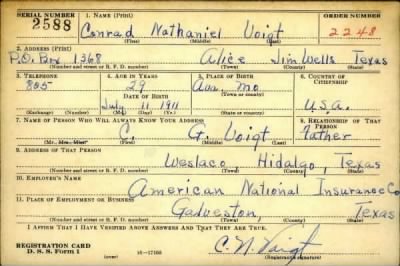 SERIAL NUMBER 1. NAME (Print) ORDER NUMBER
2588 Conrad Nathaniel Voigt 2248
(First) (Middle) (Last)
2. ADDRESS (Print)
P.O. Box 1368 Alice Jim Wells Texas
(Number and street or R. F. D. number) (Town) (County) (State)
3. TELEPHONE 4. AGE IN YEARS 5. PLACE OF BIRTH 6. COUNTRY OF CITIZENSHIP
805 29 Ava, Mo
DATE OF BIRTH (Town or county)
July 11 1911 U.S.A.
(Exchange) (Number) (Mo.) (Day) (Yr.) (State or country)
7. NAME OF PERSON WHO WILL ALWAYS KNOW YOUR ADDRESS 8. RELATIONSHIP OF THAT PERSON
C. G. Voigt Father
(Mr., Mrs., Miss) (First) (Middle) (Last)
9. ADDRESS OF THAT PERSON
Weslaco, Hidalgo, Texas
(Number and street or R. F. D. number) (Town) (County) (State)
10. EMPLOYER'S NAME
American National Insurance Co
11. PLACE OF EMPLOYMENT OR BUSINESS
Galveston, Texas
(Number and street or R. F. D. number) (Town) (County) (State)
I AFFIRM THAT I HAVE VERIFIED ABOVE ANSWERS AND THAT THEY ARE TRUE.
REGISTRATION CARD C. N. Voigt
D. S. S. Form 1 16—17105 (Registrant's signature)